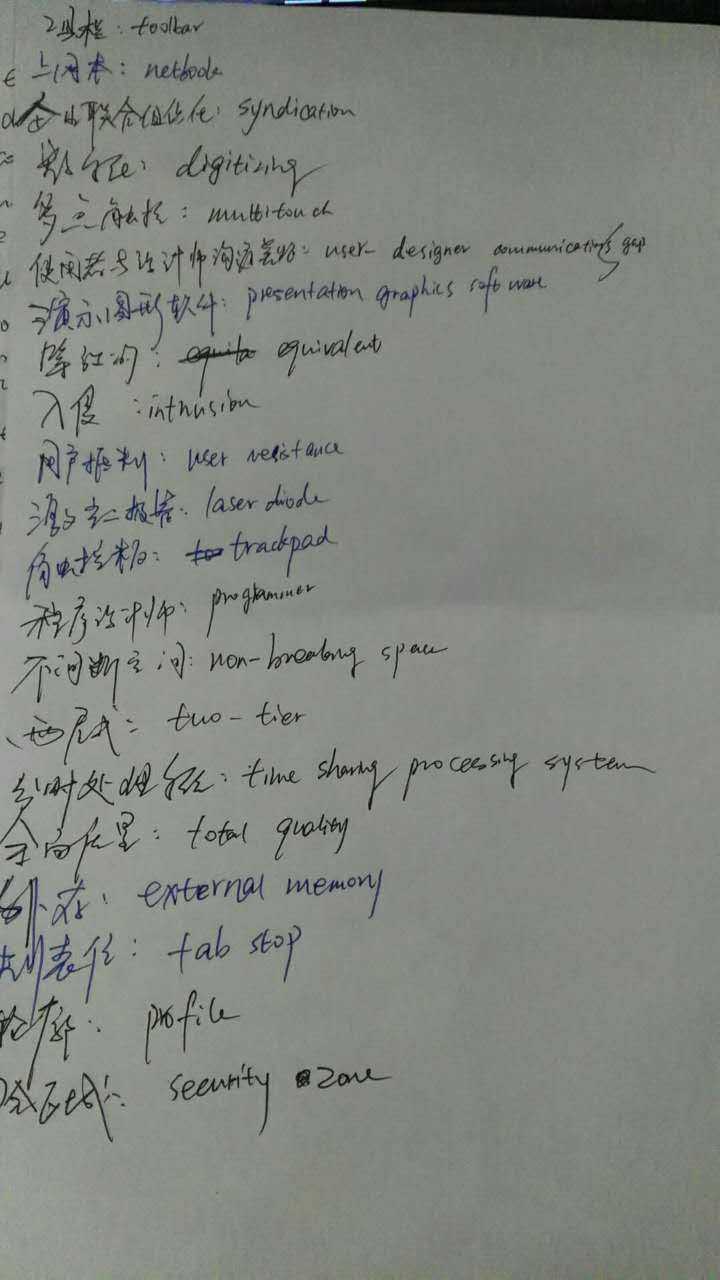 工具栏: toolbar
上网本: netbook
企业联合组织化: syndication
数字化: digitizing
多点触控: multitouch
使用者与设计师沟通差好: user-designer communications gap
演示图形软件: presentation graphics software
等征的: equivalent
入侵: intrusion
用户抵制: user resistance
激光二极管: laser diode
触控板: trackpad
程序设计师: programmer
不间断空间: non-breaking space
两层式: two-tier
分时处理系统: time sharing processing system
全面质量: total quality
外存: external memory
制表位: tab stop
轮廓: profile
全区域: security zone